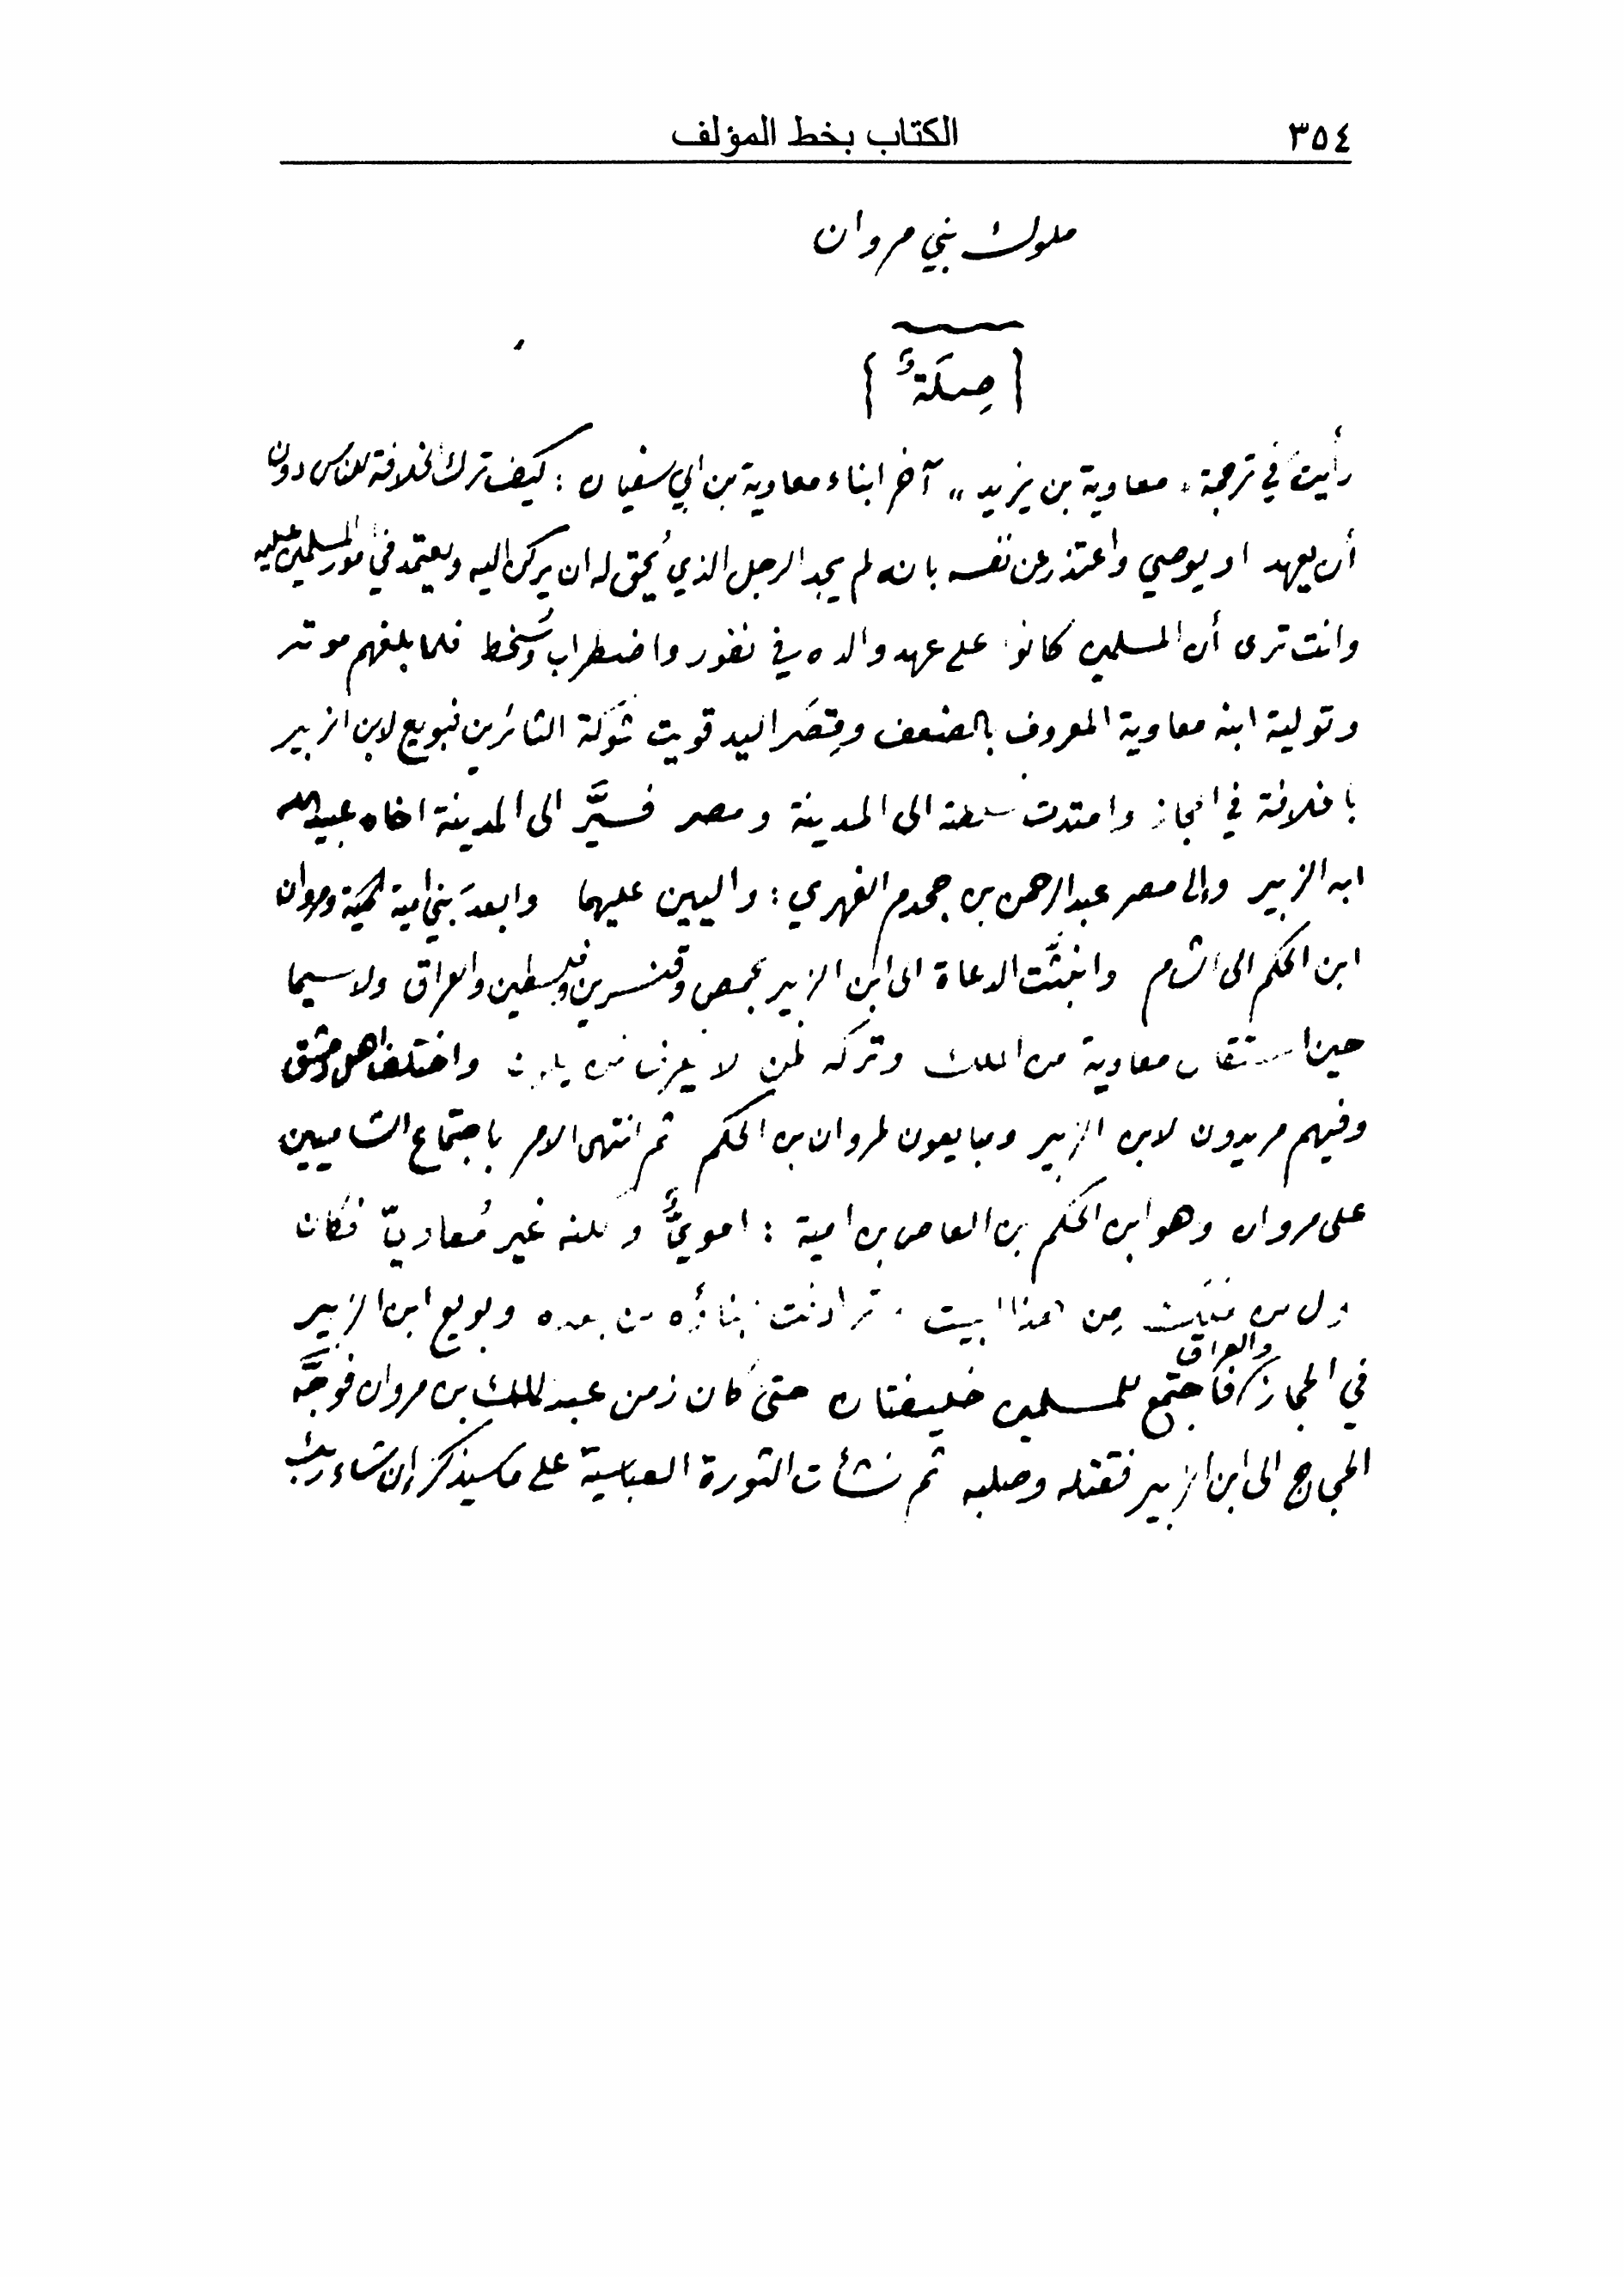 ٣٥٤
الكتاب بخط المؤلف
ملوك بني مروان
[صِلَةٌ]
رأيتَ في ترجمة „ معاوية بن يزيد „ آخر ابناء معاوية بن ابي سفيان : كيف ترك الخلافة للناس دون
أن يعهد او يوصي واعتذر عن نفسه بانه لم يجد الرجل الذي يُحق له ان يركن اليه ويعتمد في امور المسلمين عليه
وانت ترى أن المسلمين كانوا على عهد والده في نفور واضطراب وسُخط فلما بلغهم موته
وتولية ابنه معاوية المعروف بالضعف وقِصَر اليد قويت شَوكة الثائرين فبويع لابن الزبير
بالخلافة في الحجاز وامتدت سلطته الى المدينة ومصر فسيَّر الى المدينة اخاه عبيدالله
ابن الزبير وإلى مصر عبد الرحمن بن جحدم الفهري : واليين عليهما وابعدَ بني امية ومروان
ابن الحكم الى الشام وانبثَّت الدعاة الى ابن الزبير بحمص وقنسرين وفلسطين والعراق ولا سيما
حين استقال معاوية من الملك وتركه لمن لا يعرف واختلف اهل دمشق
وفيهم مريدون لابن الزبير ومبايعون لمروان بن الحكم ثم انتهى الامر باجتماع الشاميين
على مروان وهو ابن الحكم بن العاص بن امية : امويٌّ ولكنه غير مُعاويّ فكان
اول من مَلَك مِن هذا البيت ترادفت ابناؤه من بعده وبويع ابن الزبير
في الحجاز والعراق فاجتمع للمسلمين خليفتان حتى كان زمن عبد الملك بن مروان فوجَّه
الحجاج الى ابن الزبير فقتله وصلبه ثم نشأت الثورة العباسية على ما سيذكر إن شاء ربك